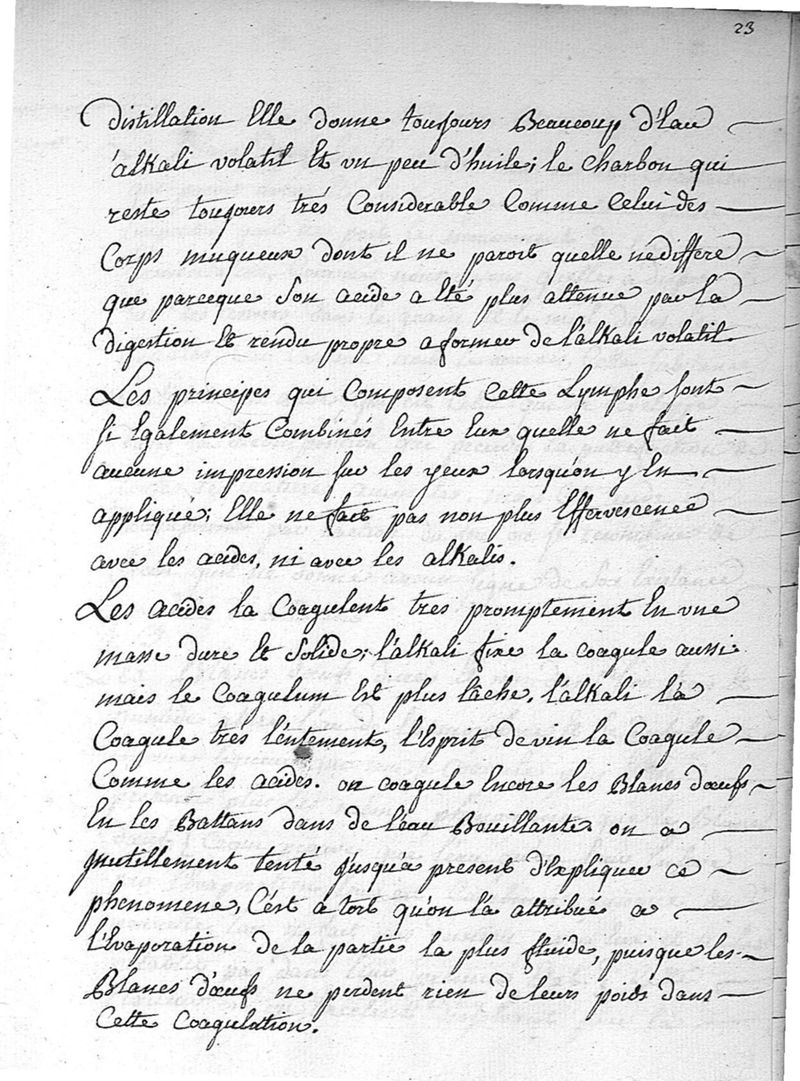 23
distillation Elle donne toujours Beaucoup d'Eau
álKali volatil Et vn peu d'huile; le charbon qui
reste toujours trés Considerable Comme Celui des
Corps muqueux dont il ne paroit quelle nediffere
que parceque Son acide a Eté plus attenué par la
digestion Et rendu propre a former de l'álKali volatil.
Les principes qui Composent Cette Lymphe sont
si Egalement Combinés Entre Eux quelle ne fait
aucune impression sur les yeux lorsquon y En
applique; Elle ne fait pas non plus Effervescence
avec les acides, ni avec les alKalis.
Les acides la Coagulent tres promptement En vne
masse dure Et Solide; l'alKali fixe la coagule aussi
mais le Coagulum Est plus lâche, l'alKali la
Coagule tres lentement, l'Esprit de vin la Coagule
Comme les acides. on coagule Encore les Blancs d'œufs
En les Battans dans de l'eau Bouillante. on a
jnutillement tenté jusqu'a present d'Expliquer ce
phenomene, C'ést a tort qu'on l'a attribué a
l'Evaporation de la partie la plus fluide, puisque les
Blancs d'œufs ne perdent rien de leurs poids dans
Cette Coagulation.